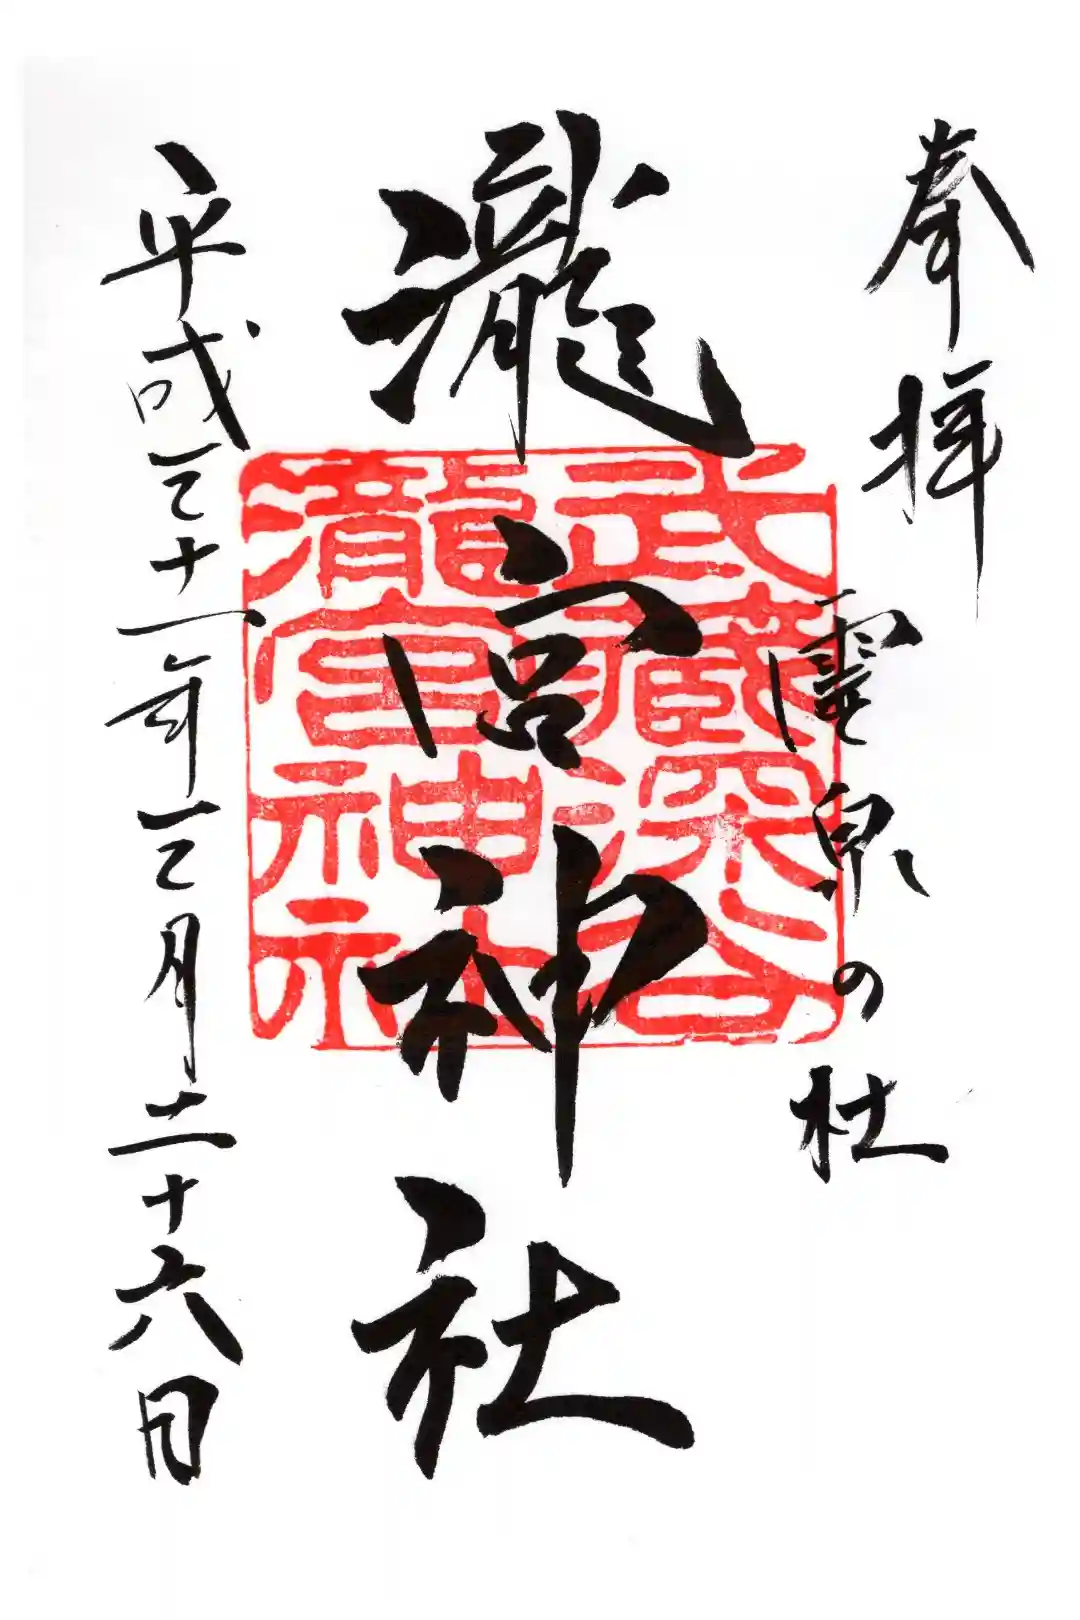 奉拝
霊泉の杜
瀧宮神社
武蔵深谷
瀧宮神社
平成三十一年三月二十六日